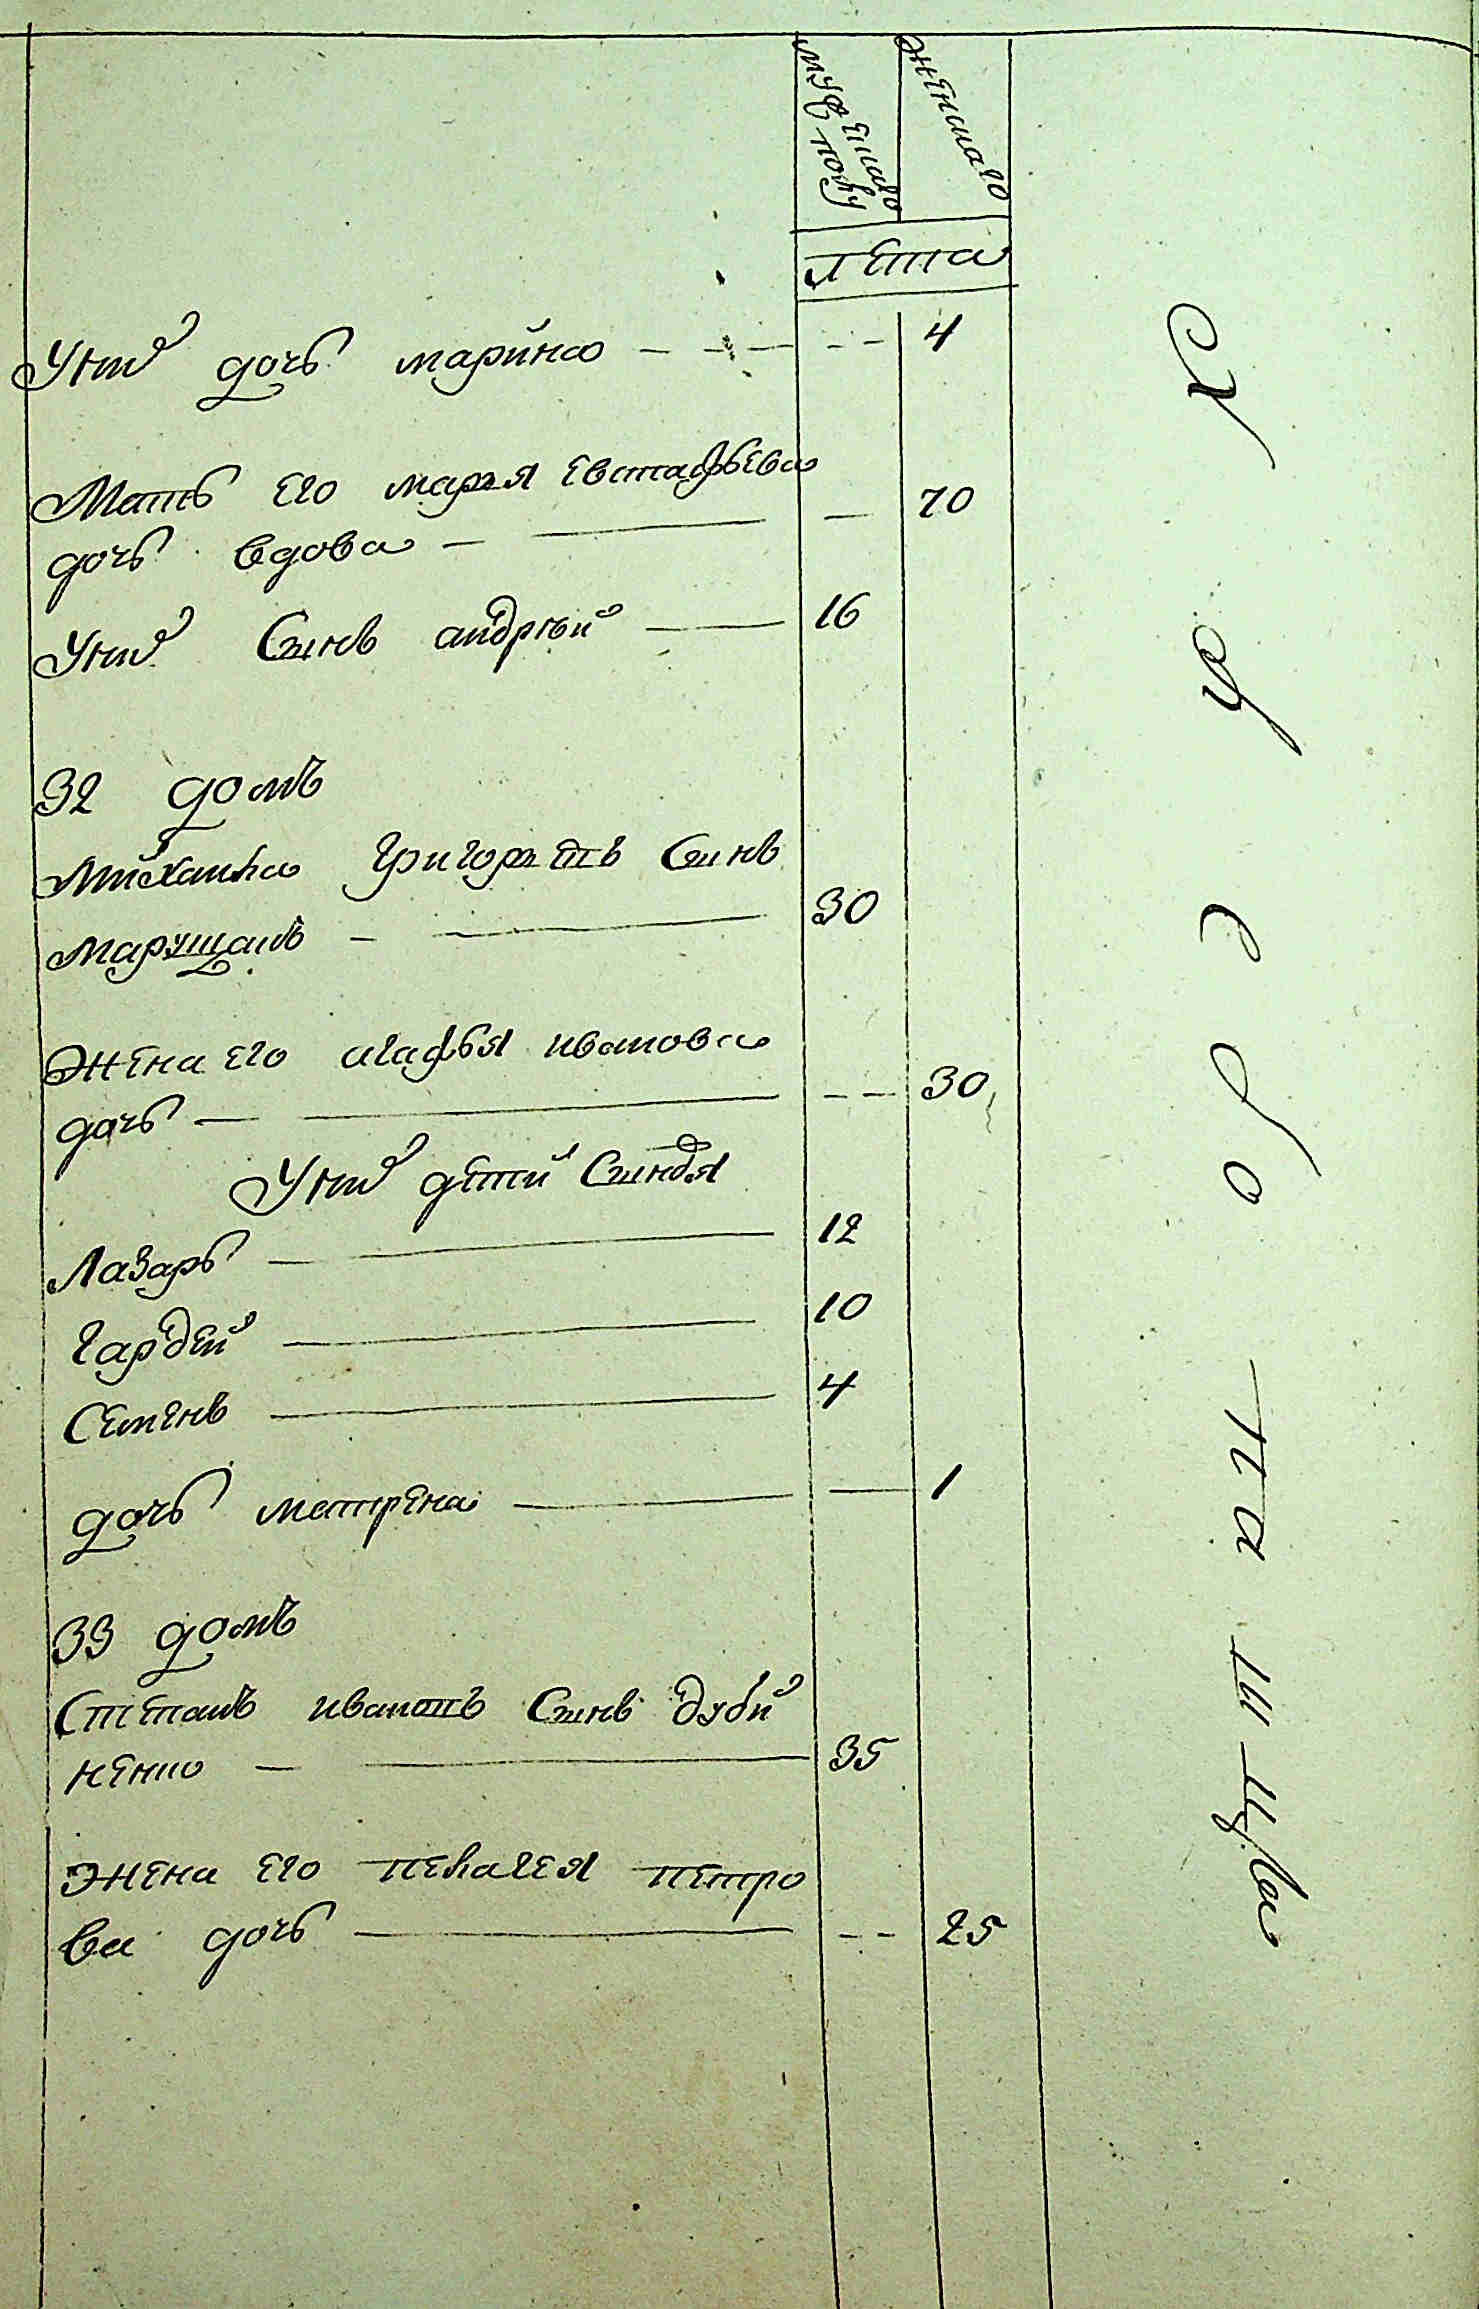 мужеска
го
полу
женскаго
лета
Уних дочь марина 4
Мать его марья евстафьева
дочь вдова 70
Уних Синъ андрей 16
32 домъ
Михаила григорьевъ Синъ
марущакъ 30
Жена его агафья иванова
дочь 30
Уних детей Синовья
Лазарь 12
гардей 10
Семенъ 4
дочь матрена 1
33 домъ
Степанъ ивановъ Синъ дуби
ненко 35
жена его пелагея петро
ва дочь 25